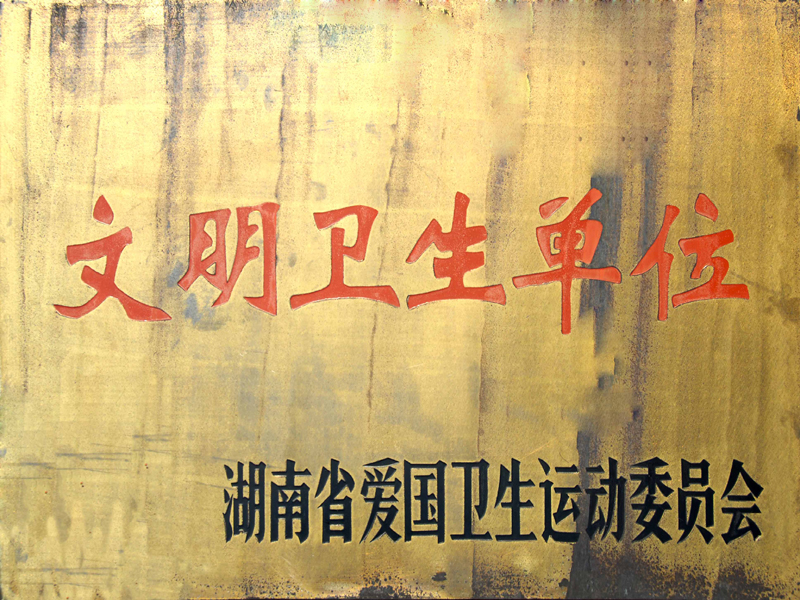 文明卫生单位
湖南省爱国卫生运动委员会